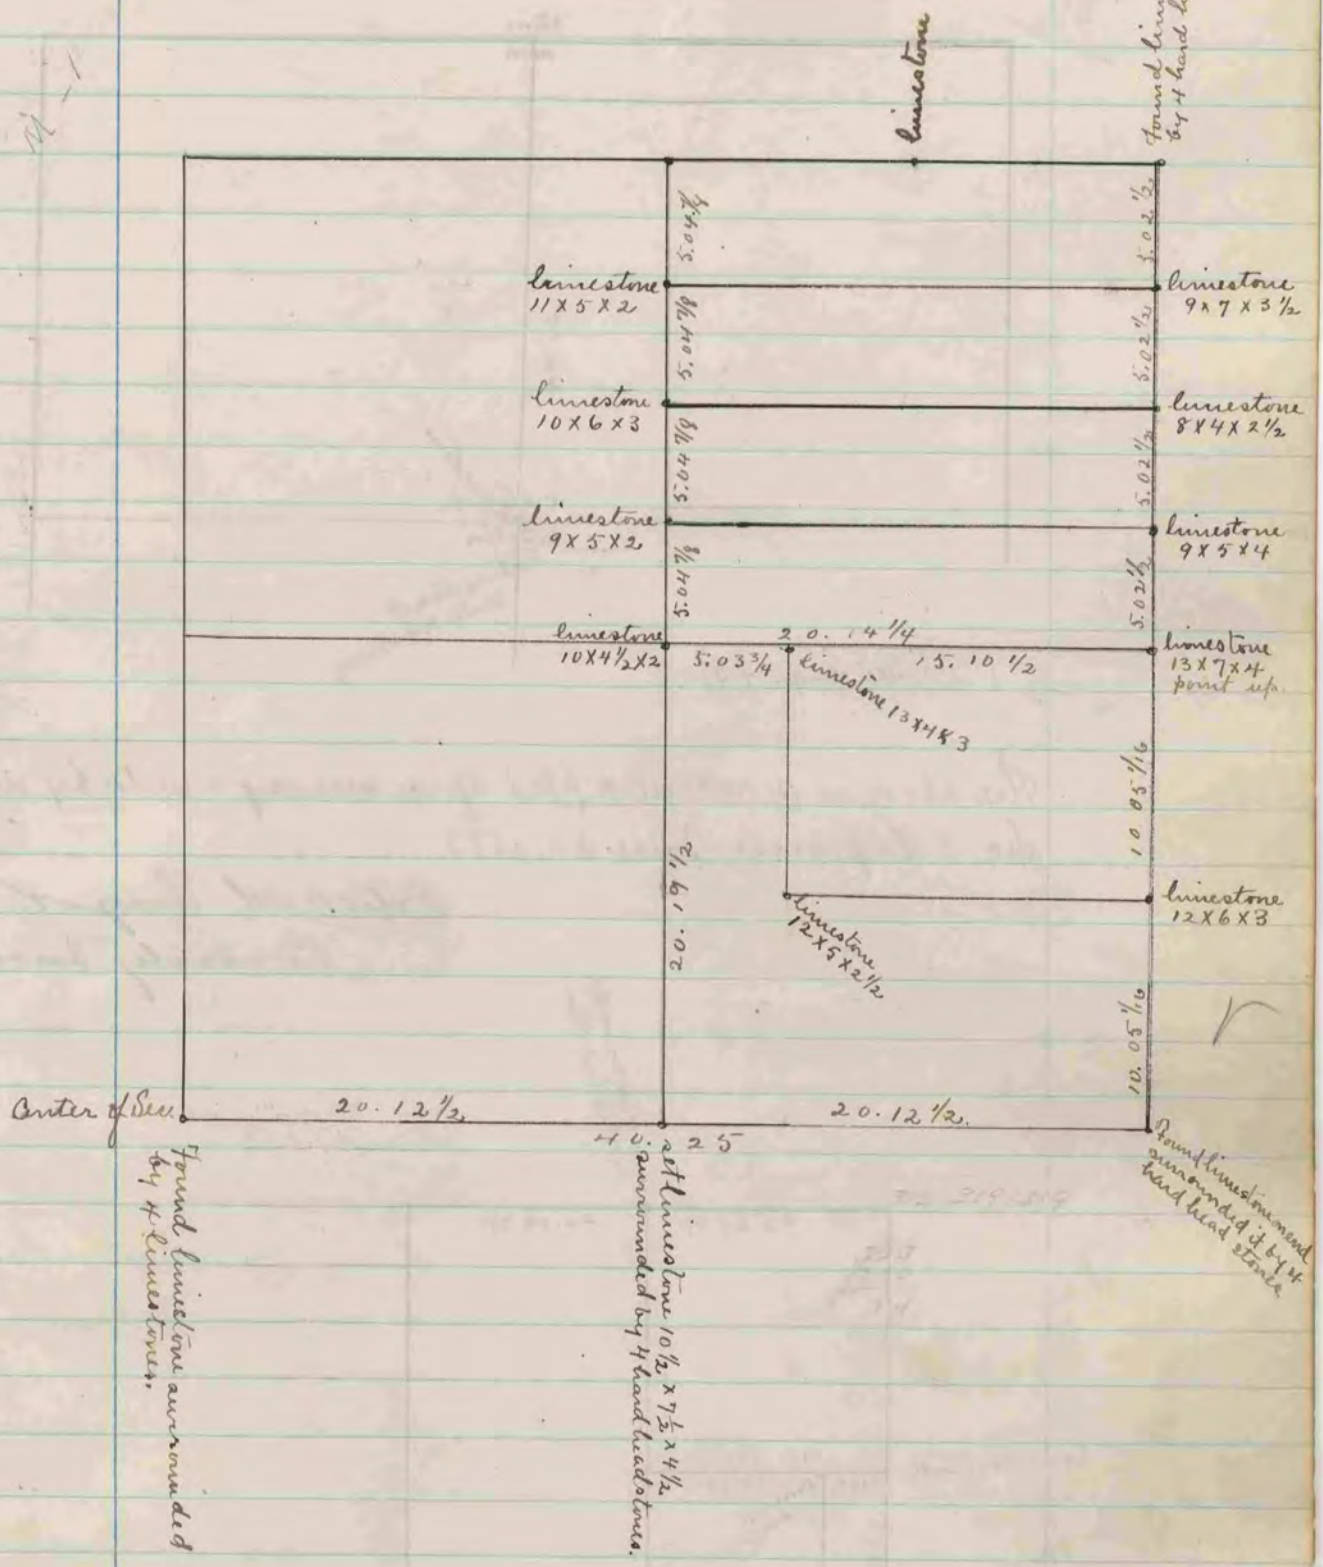 limestone
Found
by 4 hard
5.04 7/8
5.02 1/2
limestone
11 X 5 X 2
limestone
9 X 7 X 3 1/2
5.04 7/8
5.02 1/2
limestone
10 X 6 X 3
limestone
8 X 4 X 2 1/2
5.04 7/8
5.02 1/2
limestone
9 X 5 X 2
limestone
9 X 5 X 4
5.04 7/8
5.02 1/2
limestone
10 X 4 1/2 X 2
20.14 1/4
5.03 3/4
15.10 1/2
limestone 13 X 4 X 3
limestone
13 X 7 X 4
point up.
10 05 1/16
20.19 1/2
limestone
12 X 5 X 2 1/2
limestone
12 X 6 X 3
10.05 1/16
Center of Sec.
20.12 1/2
20.12 1/2.
40.25
Found limestone surrounded
by 4 limestones.
set limestone 10 1/2 x 7 1/2 x 4 1/2
surrounded by 4 hard head stones.
Found limestone
surrounded it by 4
hard head stones